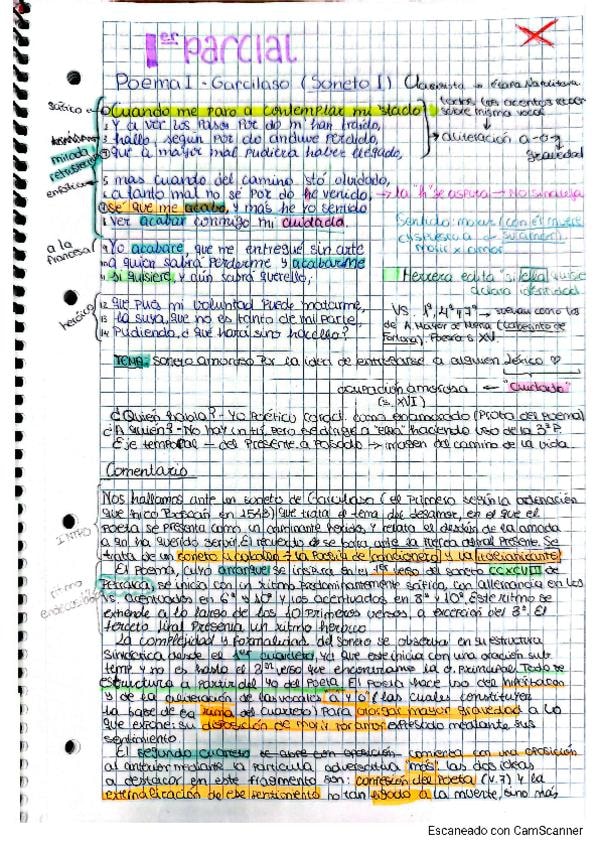 1er parcial
Poema I - Garcilaso (Soneto I) Clasicista → Etapa Napolitana
Cuando me paro a contemplar mi 'stado
2 Y a ver los pasos por do m'han traído,
3 hallo, según por do anduve perdido,
que a mayor mal pudiera haber llegado,
5 mas cuando del camino 'stó olvidado,
a tanto mal no sé por do he venido, → la "h" se aspira → No sinalefa
sé que me acabo, y más he yo sentido
8 ver acabar conmigo mi cuidado.
Yo acabaré, que me entregué sin arte
a quien sabrá perderme y acabarme
si quisiere, y aún sabrá querello;
12 que pues mi voluntad puede matarme,
13 la suya, que no es tanto de mi parte,
14 Pudiendo, ¿qué hará sino hacello?
sáfico
mirada retrospectiva
enfático
a la francesa
heroico
todos los acentos recaen sobre misma vocal
aliteración a-o
gravedad
Sentido: morir (con él muere
dispuesto a su sufrimiento
morir x amor
Herrera edita "si ella quise
aclara identidad
VS. 1º, 4º y 7º → suenan como los
de A. Mayor de Mena (Laberinto de
Fortuna). Poesía s. XV.
TEMA: Soneto amoroso por la idea de entregarse a alguien. Léxico ♡
ocupación amorosa ← "Cuidado"
(s. XVI)
¿Quién habla? - Yo poético caract. como enamorado (Prota del poema)
¿A quién? - No hay un tú, pero se dirige a "ella" haciendo uso de la 3ª P.
Eje temporal — del Presente a Pasado → imagen del camino de la vida.
Comentario
INTRO
Nos hallamos ante un soneto de Garcilaso (el primero según la ordenación
que hizo Boscán en 1543) que trata el tema del desamor, en el que el
poeta se presenta como un caminante perdido y relata el desdén de la amada
a su ha querido servir. El recuerdo se borra ante la fuerza astral presente. Se
trata de un soneto a caballo = la poesía de cancionero y la italianizante.
El Poema, cuyo arranque se inspira en el 1er verso del soneto CCXCVIII de
Petrarca, se inicia con un ritmo predominantemente sáfico, con alternancia en los
vs. acentuados en 6ª y 10ª y los acentuados en 8ª y 10ª. Este ritmo se
extiende a lo largo de los 10 primeros versos, a excepción del 3º. El
terceto final presenta un ritmo heroico.
ritmo
endecasílabo
La complejidad y formalidad del soneto se observan en su estructura
sintáctica desde el 1er cuarteto, ya que este inicia con una oración sub.
temp y no es hasta el 2º verso que encontramos la o. principal. Toda se
estructura a partir del yo del poeta. El poeta hace uso del hipérbaton
y de la aliteración de las vocales a y o (las cuales constituyen
la base de la rima del cuarteto) para otorgar mayor gravedad a lo
que expone: su disposición de morir por amor expresado mediante sus
sentimiento.
El segundo cuarteto se abre con oposición comienza con una oposición
al anterior mediante la partícula adversativa "más". Las dos ideas
a destacar en este fragmento son: confesión del Poeta (v.7) y la
externalización de ese sentimiento no tan ligado a la muerte, sino más
Escaneado con CamScanner